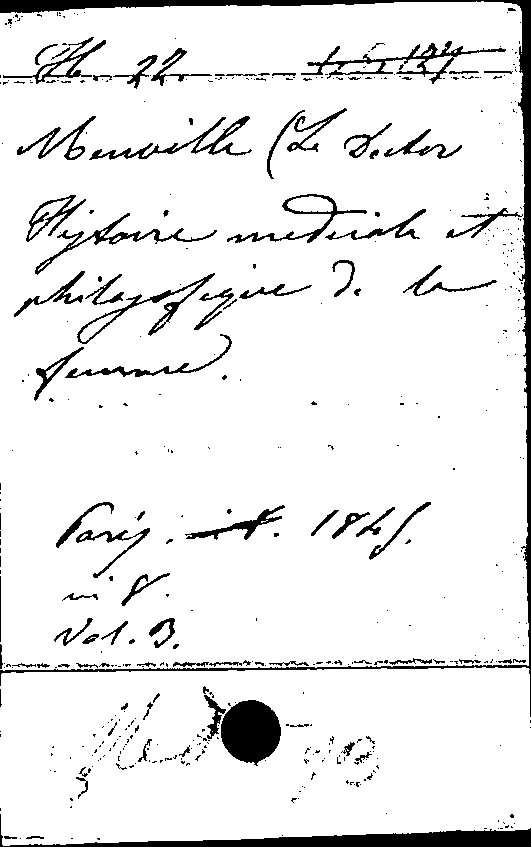 H. 22.
Menville (Le Docteur
Histoire medicale et
philosofique de la
femme.
Paris. 1845.
in 8.
Vol. 3.
Med